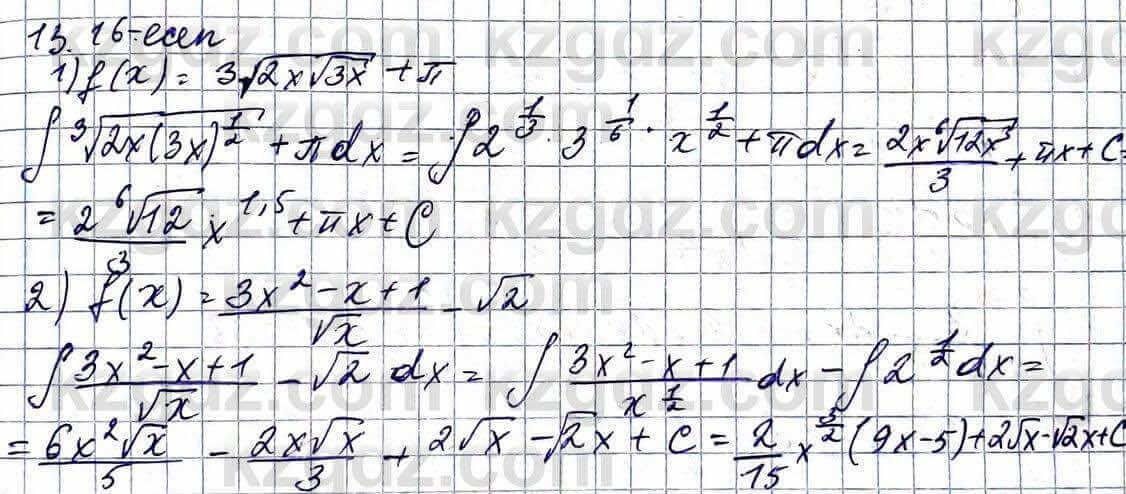 13.16-есеп
1) f(x) = 3√2x√3x + π
∫ ³√2x(3x)^½ + πdx = ∫ 2^⅓ · 3^⅙ · x^½ + πdx = 2x⁶√12x³/3 + πx + C =
= 2⁶√12/3 x^1,5 + πx + C
2) f(x) = 3x² - x + 1/√x - √2
∫ 3x² - x + 1/√x - √2 dx = ∫ 3x² - x + 1/x^½ dx - ∫ 2^½ dx =
= 6x²√x/5 - 2x√x/3 + 2√x - √2x + C = 2/15 x^3/2 (9x-5) + 2√x - √2x + C